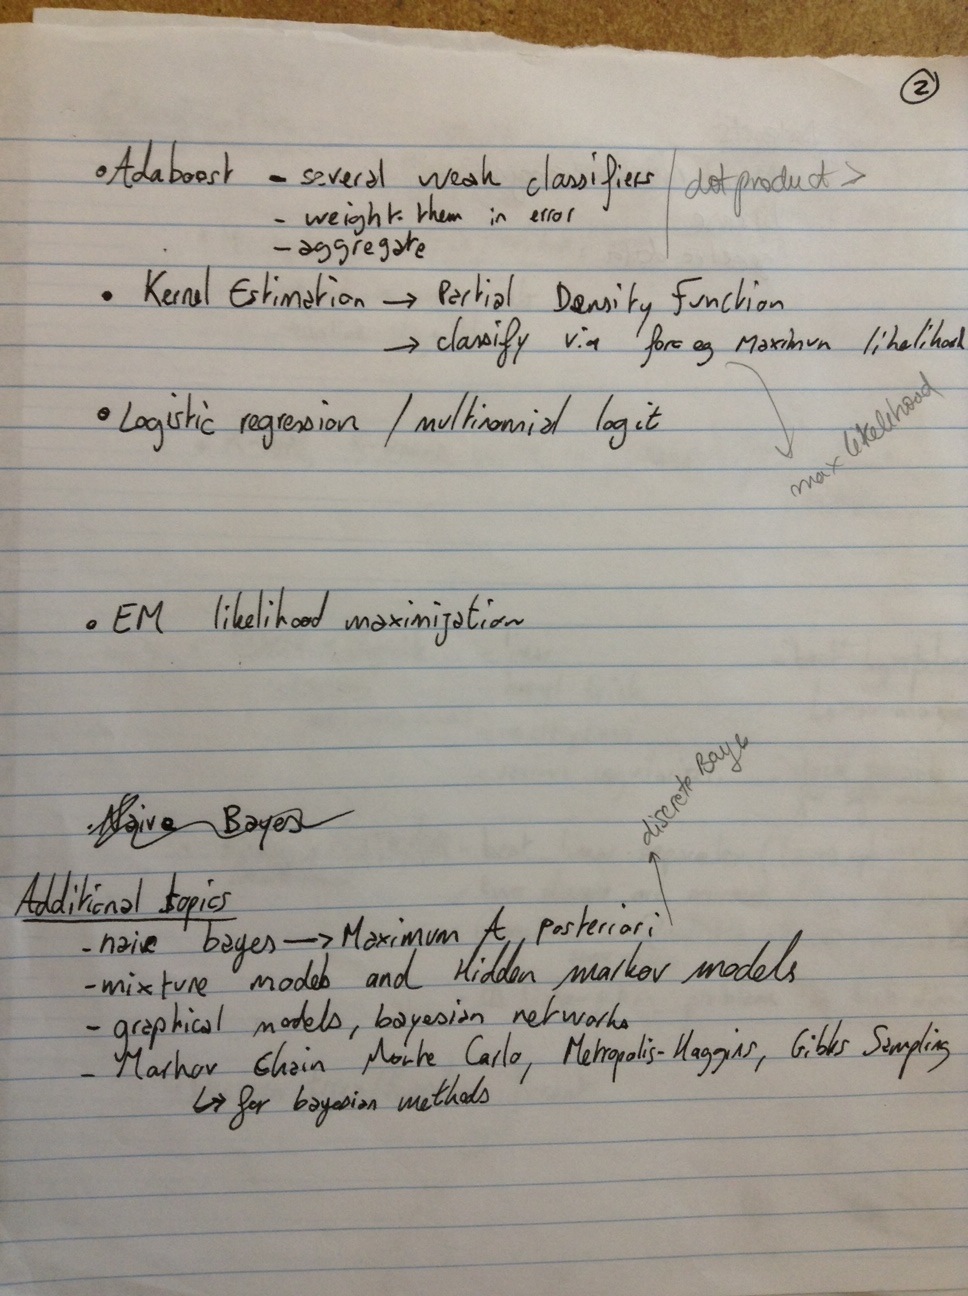 2
• Adaboost - several weak classifiers / dot product >
- weight them in error
- aggregate
• Kernel Estimation → Partial Density Function
→ classify via for eg Maximum likelihood
• Logistic regression / multinomial logit
max likelihood
• EM likelihood maximization
Naive Bayes
discrete Baye
Additional topics
- naive bayes → Maximum A Posteriori
- mixture models and Hidden markov models
- graphical models, bayesian networks
- Markov Chain Monte Carlo, Metropolis-Haggins, Gibbs Sampling
↳ for bayesian methods